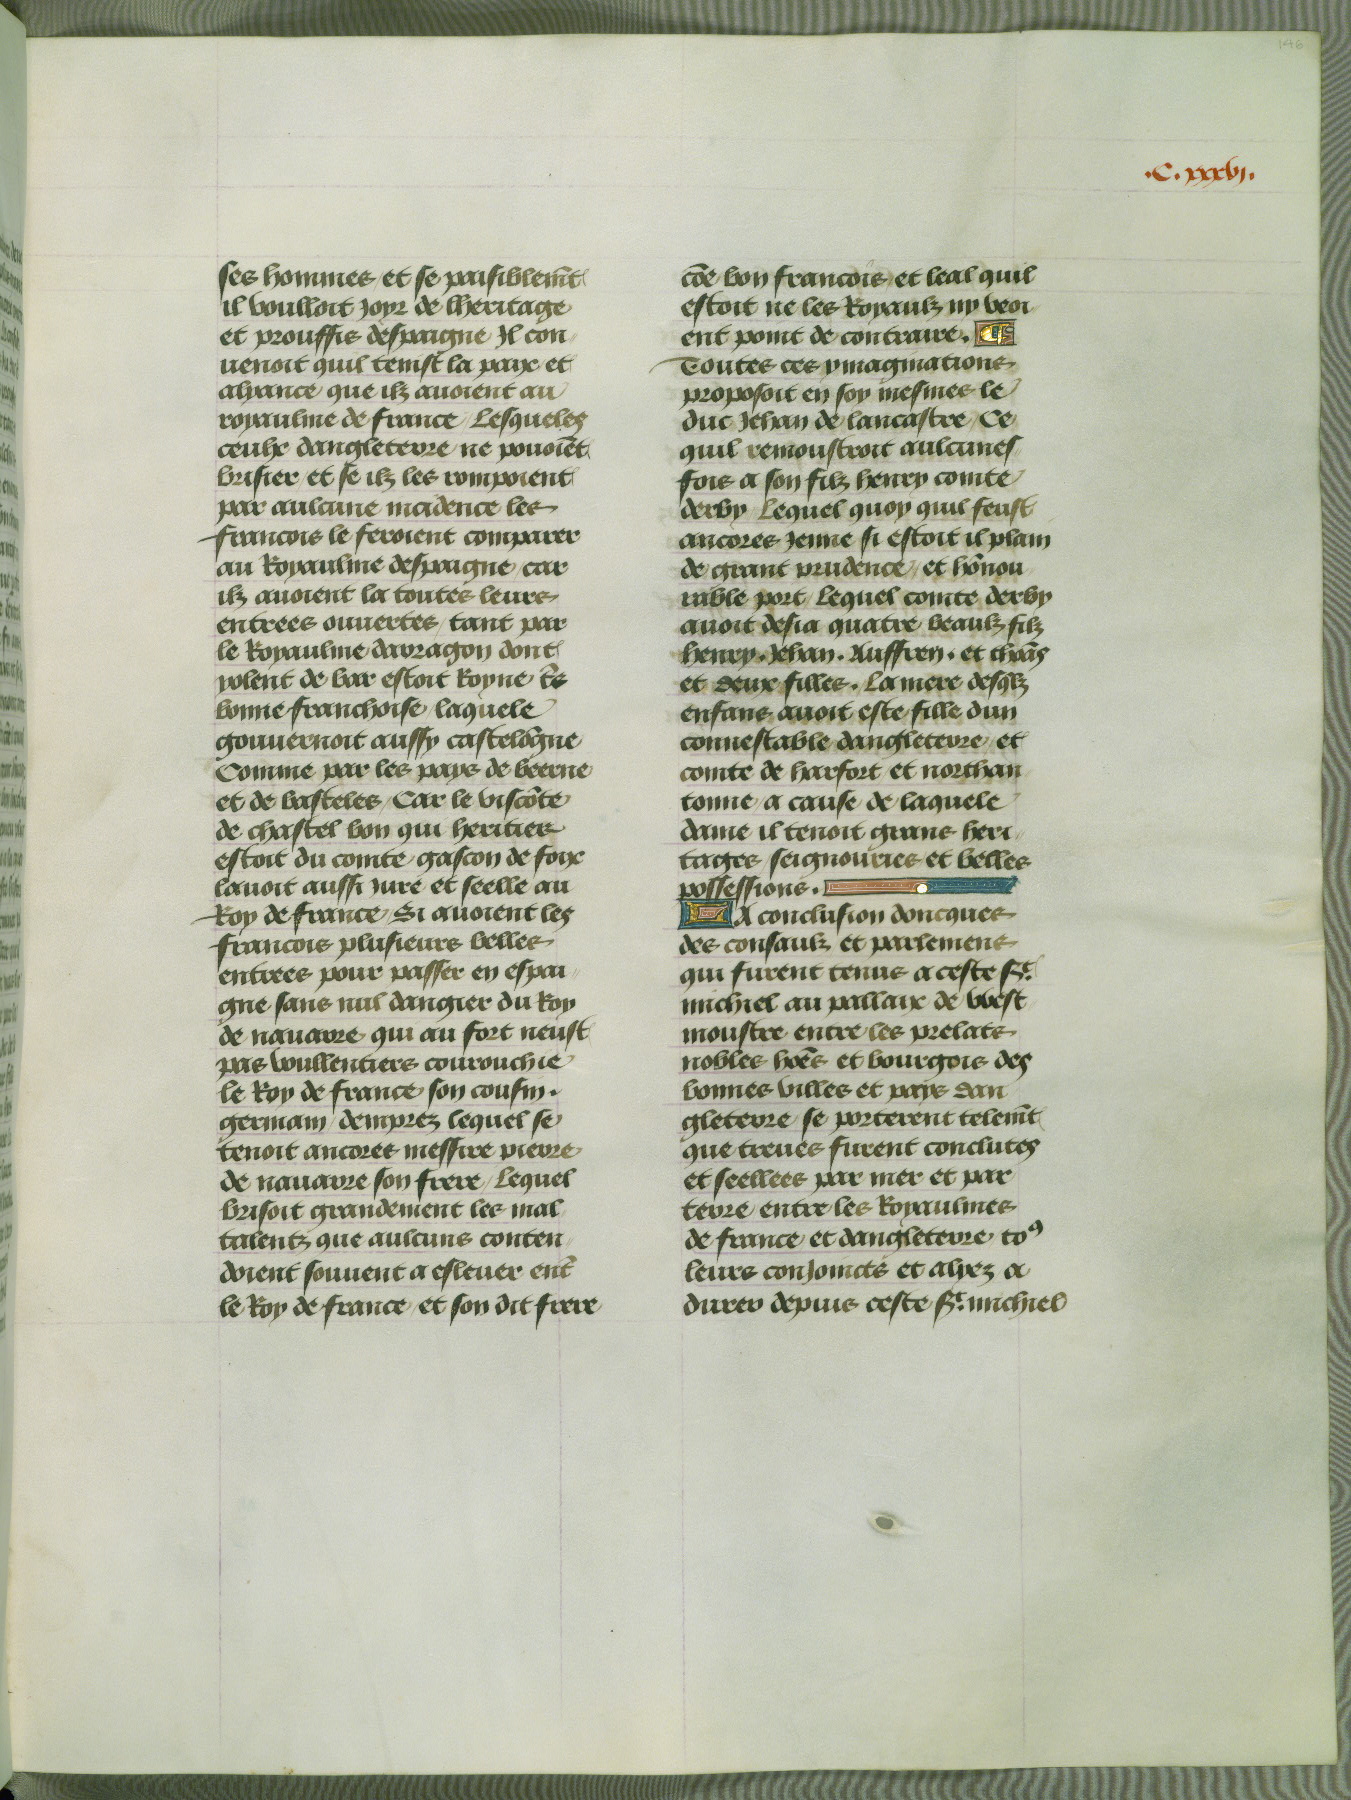 146
.C.xxxvj.
ses hommes et se paisiblem̄t
il voulloit joyr de lheritage
et prouffis despaigne Il con
uenoit quil tenist la paix et
alyance que ilz auoient au
royaulme de france Lesqueles
ceulx dangleterre ne pouoiēt
brisier et se ilz les rompoient
par aulcune incidence les
francois le feroient comparer
au Royaulme despaigne car
ilz auoient la toutes leurs
entrees ouuertes tant par
le Royaulme darragon dont
yolent de bar estoit Royne tr̄s
bonne franchoise laquele
gouuernoit aussy castelōgne
Comme par les pays de beerne
et de basteles Car le viscōte
de chastel bon qui heritier
estoit du comte gascon de foix
lauoit aussi jure et seelle au
Roy de france Si auoient les
francois plusieurs belles
entrees pour passer en espai
gne sans nul dangier du Roy
de nauarre qui au fort neust
pas voullentiers courouchie
le Roy de france son cousin
germain demprez lequel se
tenoit ancores messire pierre
de nauarre son frere Lequel
brisoit grandement les mal
talentz que aulcuns conten
doient souuent a esleuer ent̄
le Roy de france et son dit frere
cōe bon francois et leal quil
estoit ne les Royaulz ny veoi
ent point de contraire. ¶
Toutes ces ymaginations
proposoit en soy mesmes le
duc Jehan de lancastre Ce
quil remoustroit aulcunes
fois a son filz henry comte
derby Lequel quoy quil feust
ancores jenne si estoit il plain
de grant prudence et hōnou
rable port Lequel comte derby
auoit desia quatre beaulz filz
henry. Jehan. Auffren. et thoās
et deux filles. La mere desqlz
enfans auoit este fille dun
connestable dangleterre et
comte de harfort et northan
tonne a cause de laquele
dame il tenoit grans heri
tages seignouries et belles
possessions.
LA conclusion doncques
des consaulz et parlemens
qui furent tenus a ceste St.
michiel au pallaix de west
moustre entre les prelats
nobles hōes et bourgois des
bonnes villes et pays dan
gleterre se porterent telem̄t
que treues furent conclutes
et seellees par mer et par
terre entre les Royaulmes
de france et dangleterre toꝰ
leurs conjoincts et alyez a
durer depuis ceste St. michiel